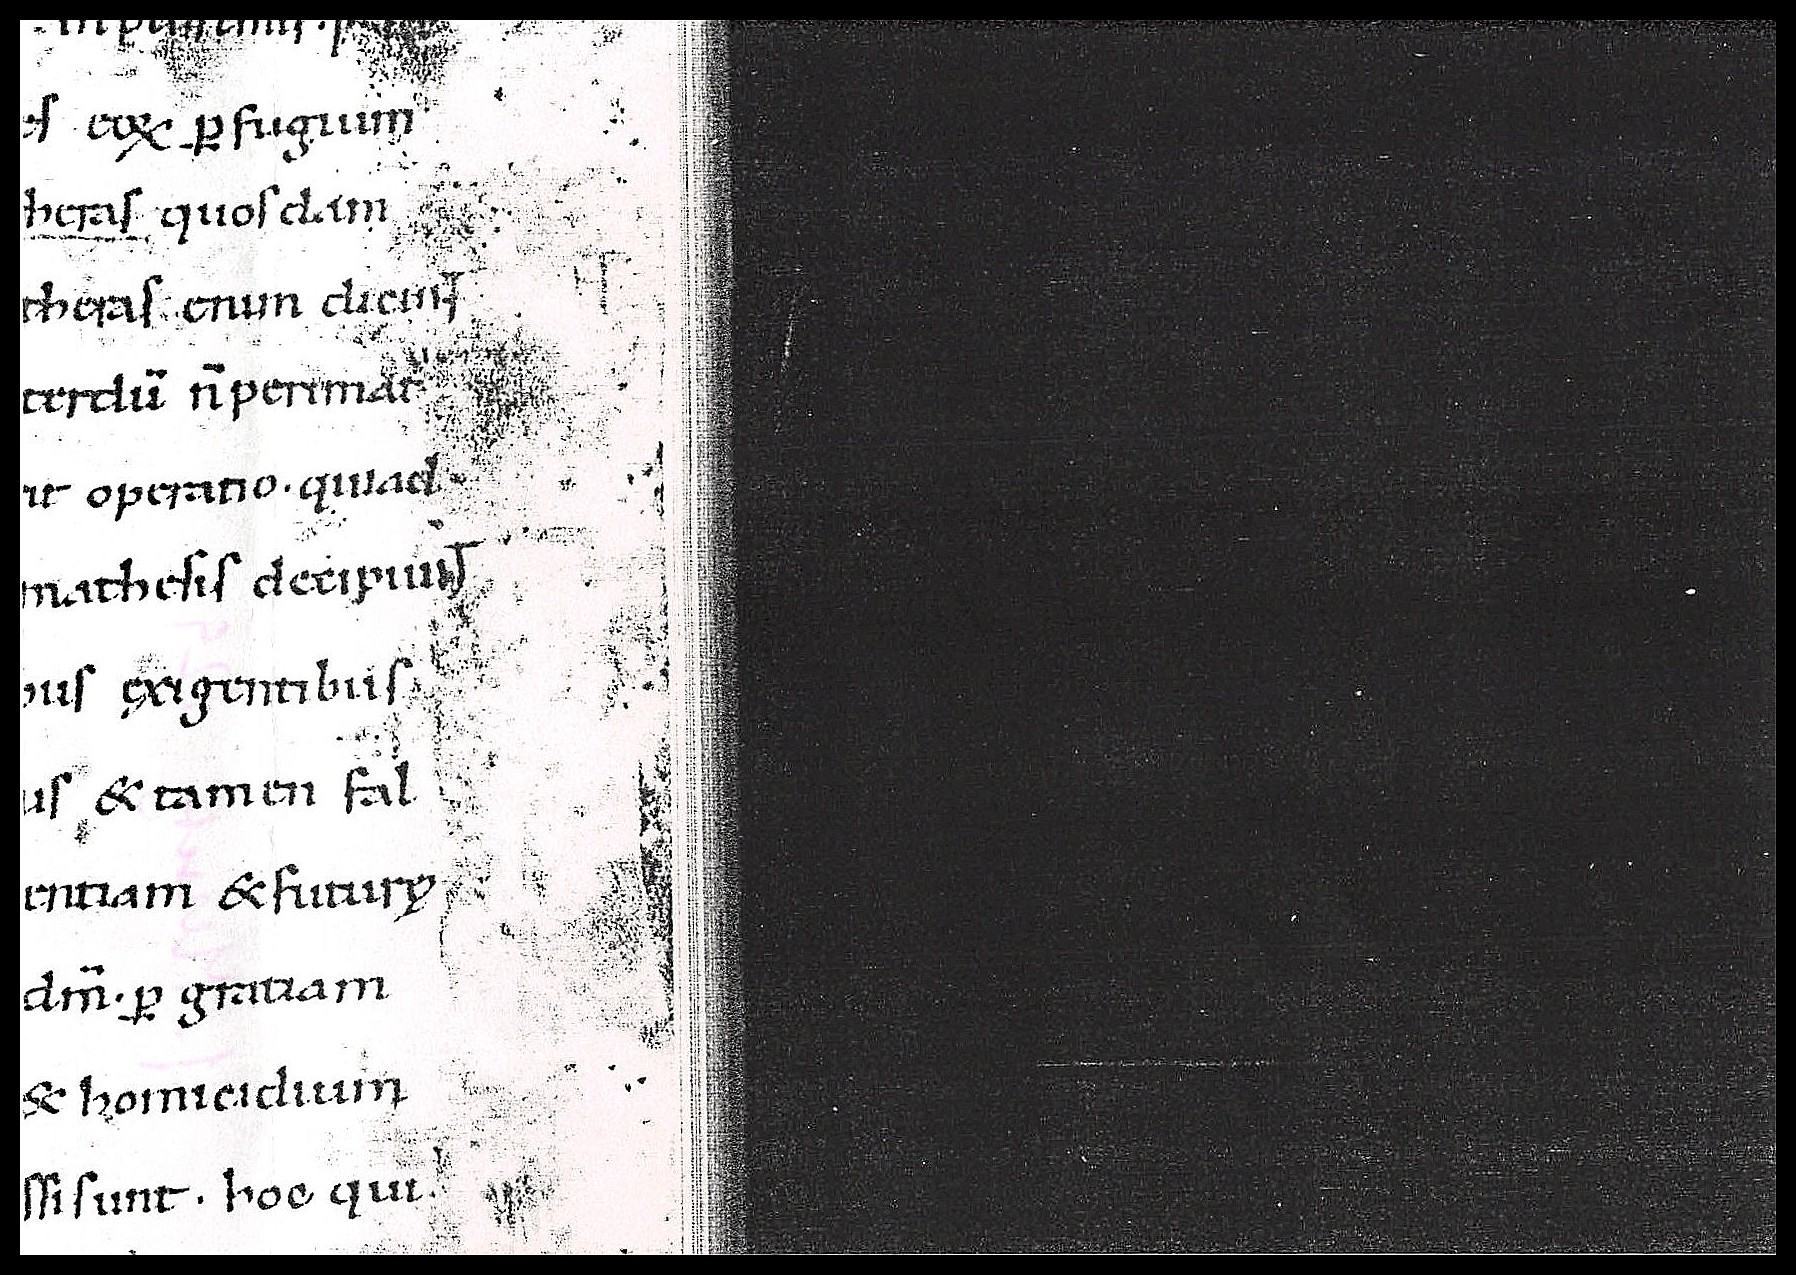 eoꝝ ꝑfugium
heras quosdam
theras enim dicunt
terdū n̄ perimat
it operatio · quia d
mathesis decipiunt
bus exigentibus
us & tamen fal
entiam & future
dm̄ · ꝑ gratiam
& homicidium
ssi sunt · hoc qui